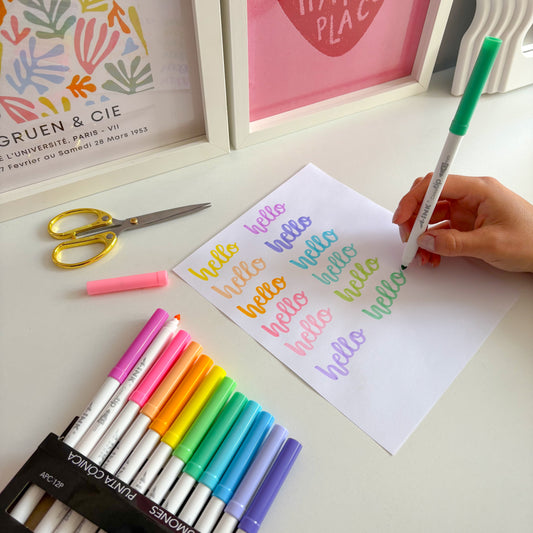 GRUEN & CIE
L'UNIVERSITÉ, PARIS - VII
Fevrier au Samedi 28 Mars 1953
PLACE
hello
hello
hello
hello
hello
hello
hello
hello
hello
hello
hello
hello
APC-12P
PUNTA CÓNICA